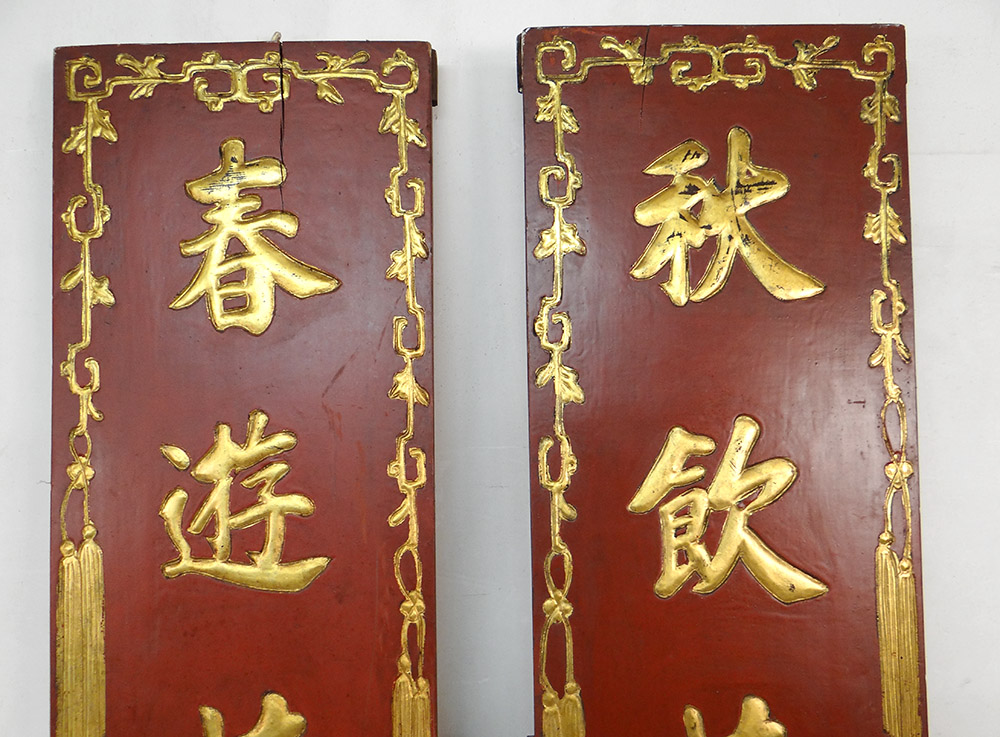 春遊
秋飲